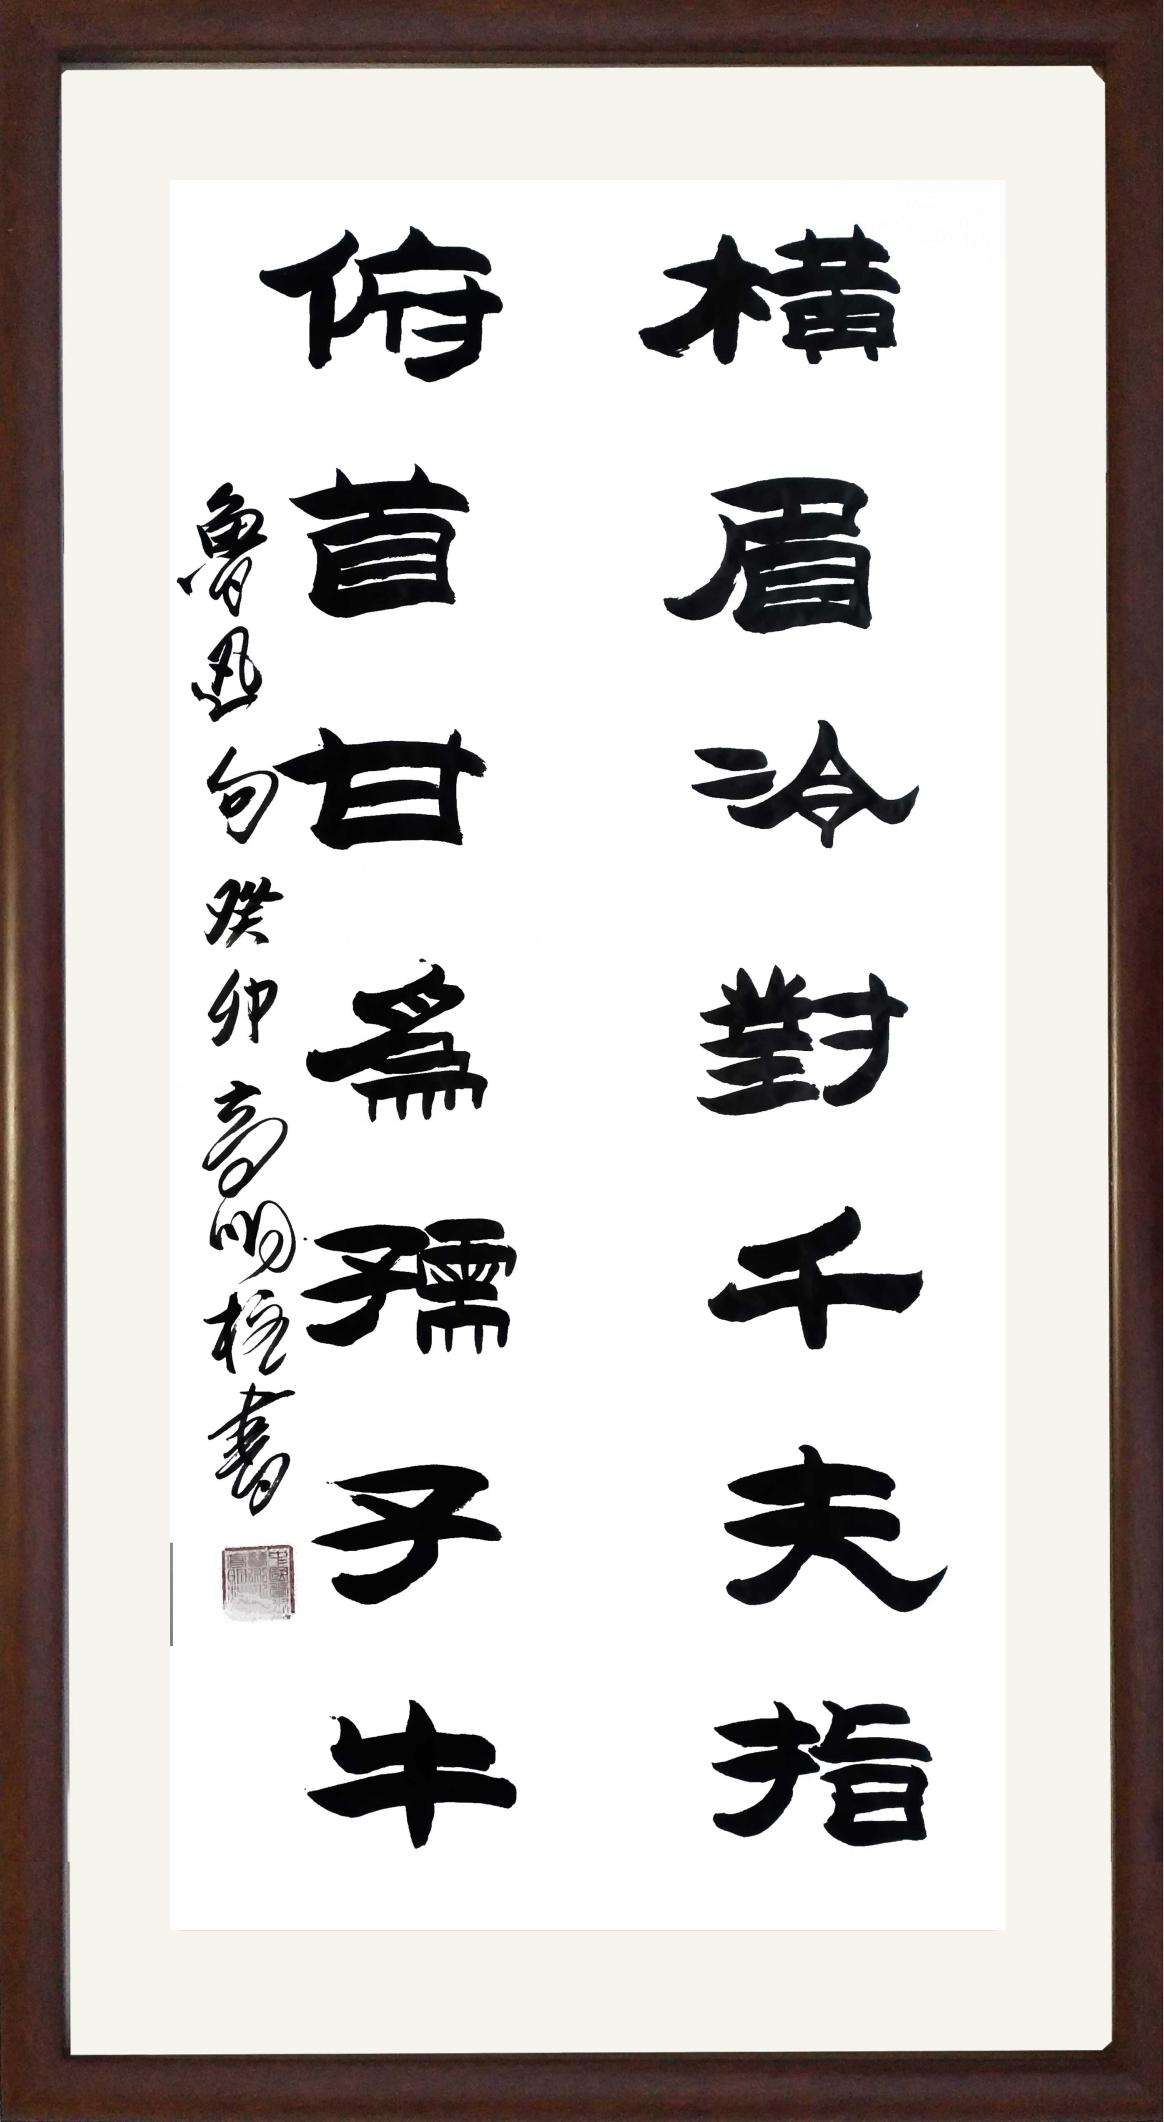 橫眉冷對千夫指
俯首甘為孺子牛
魯迅句癸卯高明柱書